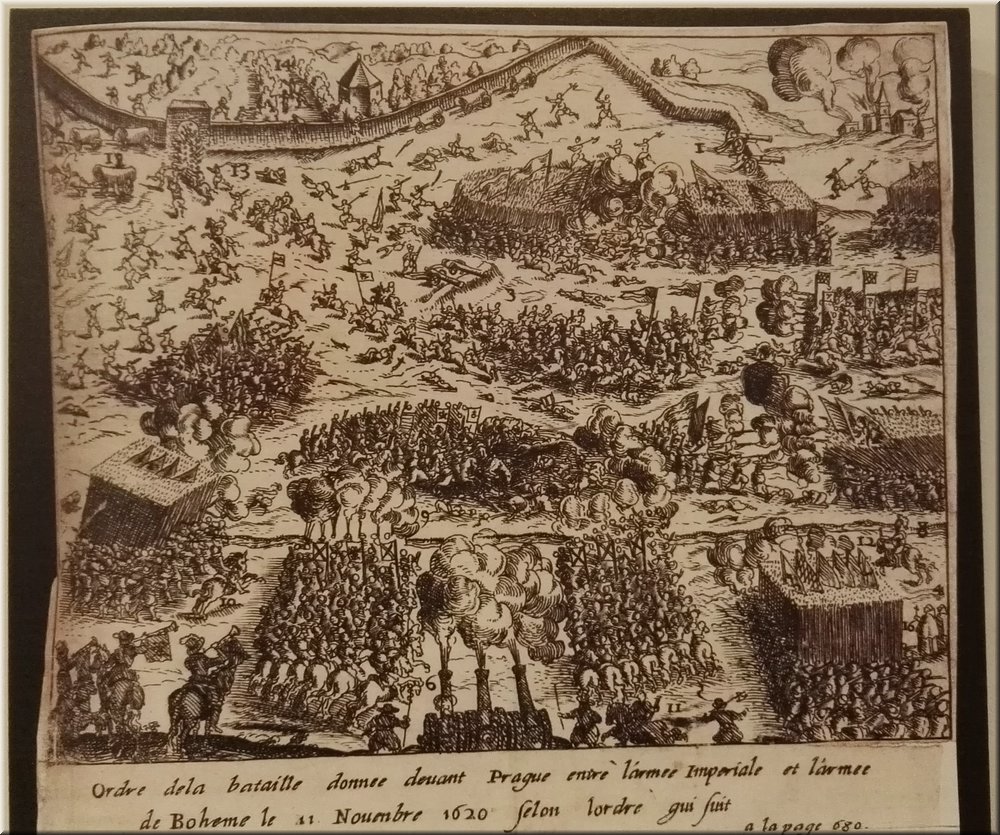 14
12
13
1
3
9
12
8
4
6
11
Ordre dela bataille donnee deuant Prague entre l'armee Imperiale et l'armee
de Boheme le 11 Nouenbre 1620 selon l'ordre qui suit
a la page 680.